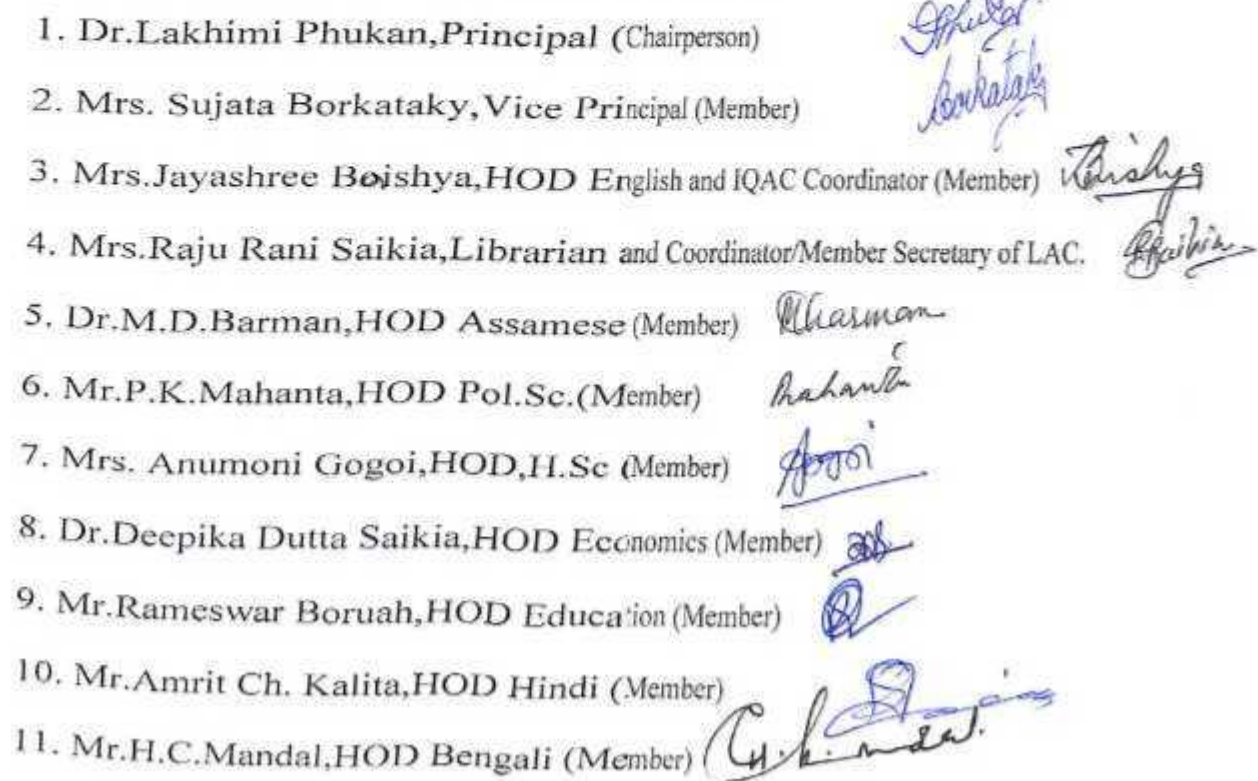 1. Dr.Lakhimi Phukan,Principal (Chairperson)
2. Mrs. Sujata Borkataky,Vice Principal (Member) Borkataky
3. Mrs.Jayashree Boishya,HOD English and IQAC Coordinator (Member) Boishya
4. Mrs.Raju Rani Saikia,Librarian and Coordinator/Member Secretary of LAC. RRSaikia
5. Dr.M.D.Barman,HOD Assamese (Member) Barman
6. Mr.P.K.Mahanta,HOD Pol.Sc.(Member) Mahanta
7. Mrs. Anumoni Gogoi,HOD,H.Sc (Member) AGogoi
8. Dr.Deepika Dutta Saikia,HOD Economics (Member)
9. Mr.Rameswar Boruah,HOD Education (Member)
10. Mr.Amrit Ch. Kalita,HOD Hindi (Member)
11. Mr.H.C.Mandal,HOD Bengali (Member)